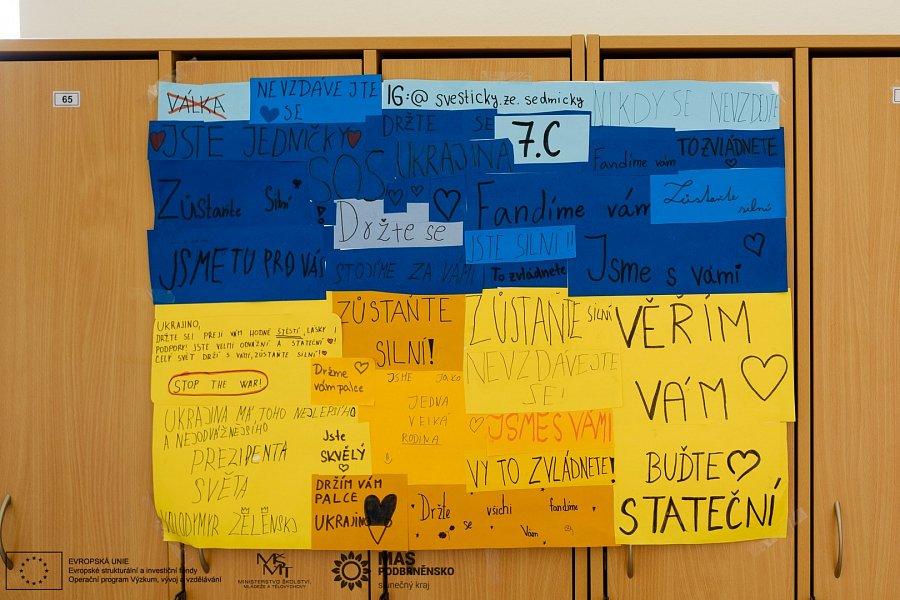 65
VÁLKA
NEVZDÁVEJTE
SE
16:@ svesticky.ze.sedmicky
NIKDY SE NEVZDEJTE
JSTE JEDNIČKY
DRŽTE SE
7.C
TO ZVLÁDNETE
Fandíme vám
SOS UKRAJINA
Zůstaňte Silní
Fandíme vám
Zůstaňte
silní
Držte se
JSTE SILNÍ!!
JSME TU PRO VÁS
STOJÍME ZA VÁMI
To zvládnete
Jsme s vámi
UKRAJINO,
DRŽTE SE! PŘEJI VÁM HODNĚ ŠTĚSTÍ, LÁSKY I
PODPORY! JSTE VELMI ODVÁŽNÍ A STATEČNÍ
CELÝ SVĚT DRŽÍ S VÁMI, ZŮSTAŇTE SILNÍ!
STOP THE WAR!
ZŮSTAŇTE
SILNÍ!
ZŮSTAŇTE SILNÍ
NEVZDÁVEJTE
SE!
VĚŘÍM
VÁM
Držme
vám palce
JSME JAKO
JEDNA
VELKÁ
RODINA
UKRAJINA MÁ TOHO NEJLEPŠÍHO
A NEJODVÁŽNĚJŠÍHO
PREZIDENTA
SVĚTA
VOLODYMYR ZELENSKÝ
Jste
SKVĚLÝ
JSME S VÁMI
VY TO ZVLÁDNETE!
BUĎTE
STATEČNÍ
DRŽÍM VÁM
PALCE
UKRAJINO
Držte se všichi fandíme
Vám
EVROPSKÁ UNIE
Evropské strukturální a investiční fondy
Operační program Výzkum, vývoj a vzdělávání
MŠMT
MINISTERSTVO ŠKOLSTVÍ,
MLÁDEŽE A TĚLOVÝCHOVY
MAS
PODBRNĚNSKO
slunečný kraj